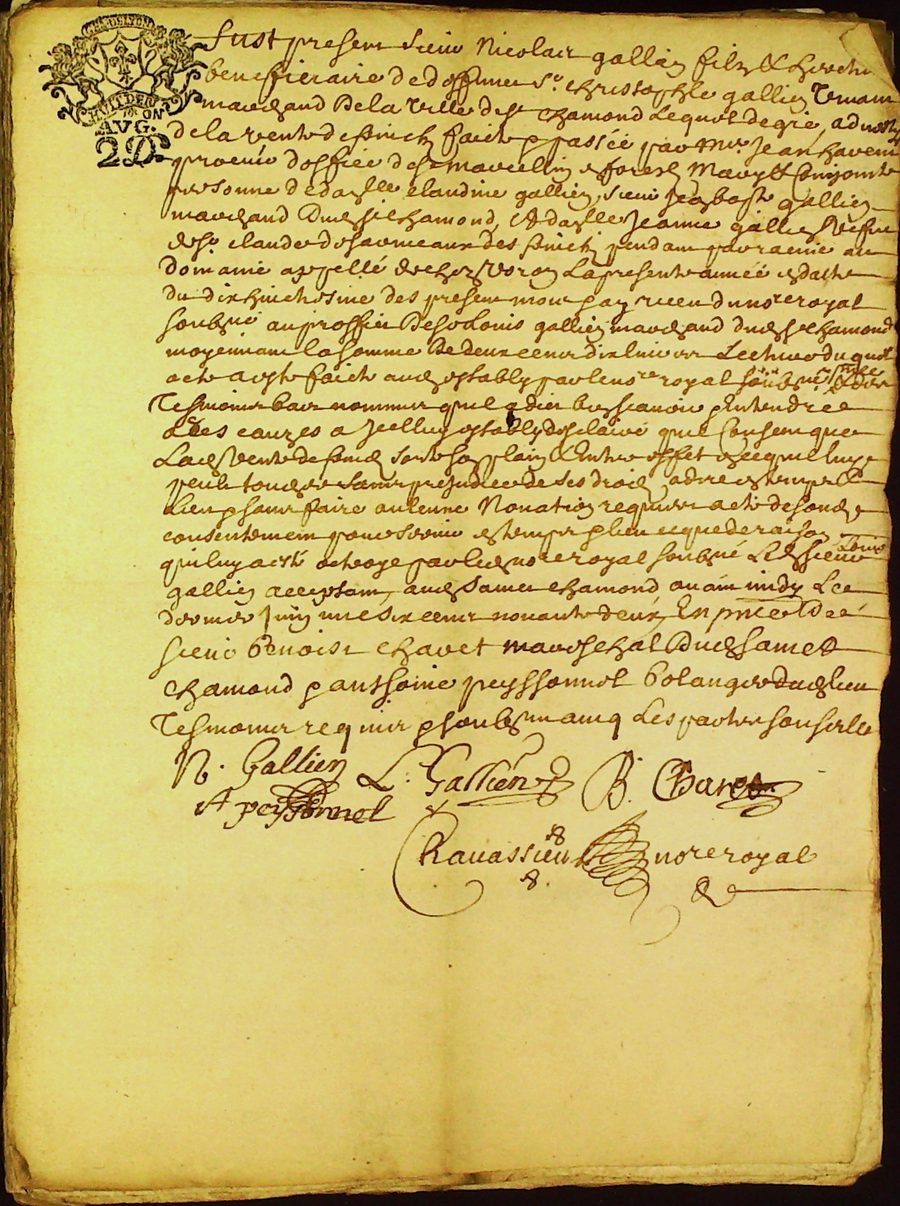 GEN DE LYON
HUIT DEN
ON
AVG.
2 D
Fust present Sieur Nicolas gallien filz & heritier
beneficiaire de deffunct Sr. christophle gallien vivant
marchand de la ville de St chamond Lequel de gré, adverty
de la vente de fruictz faicte & passée par Me. Jean
d'office de St marcellin en forestz Mary & Conjoincte
personne de dazlle claudine gallien, Sieur gallien
marchand dud St chamond, Et dazlle Jeanne gallien vefve
de Sr. claude des fruictz pendant par racine au
domaine appellé de chez La presente année en datte
du dix huictiesme des present mois par nore royal
soubné au proffict de Sr Louis gallien marchand dud St chamond
moyennant la somme de deux cent dix livres Lecture duquel
acte a esté faicte aud estably par led nore royal soubné
Tesmoins bas nommez quil a dict bien scavoir & entendre
Et les causes a Icelluy estably desclaire quil Consent que
Lad vente de fruictz sorte son plain & Entier effet
sans prejudice de ses droictz
Lieu & sans faire aulcune Novation requerir acte de sond
consentement pour servir en temps & lieu ce que de raison
qui luy a esté octroyé par led nore royal soubné Led sieur Louis
gallien acceptant, aud Sainct chamond avant midy Le
Juin mil six cent nonante deux, En presence de
sieur Benoist chavet mareschal dud Sainct
chamond & anthoine peyssonnel bolanger dud lieu
Tesmoins requis & soubz les parties
N. Gallien L. Gallien B. Chavet
A peyssonnel
Chavassieu nore royal